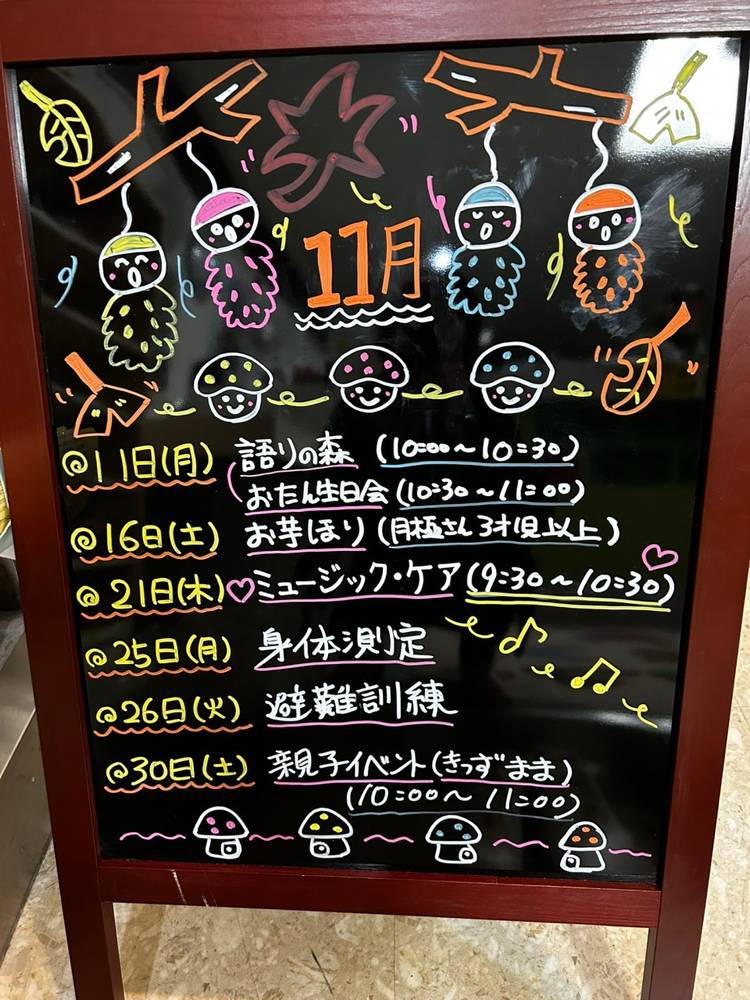 11月
@11日(月) 語りの森 (10:00～10:30)
おたん生日会 (10:30～11:00)
@16日(土) お芋ほり (月極さん3才児以上)
@21日(木)♡ミュージック・ケア(9:30～10:30)
@25日(月) 身体測定
@26日(火) 避難訓練
@30日(土) 親子イベント(きっずまま)
(10:00～11:00)